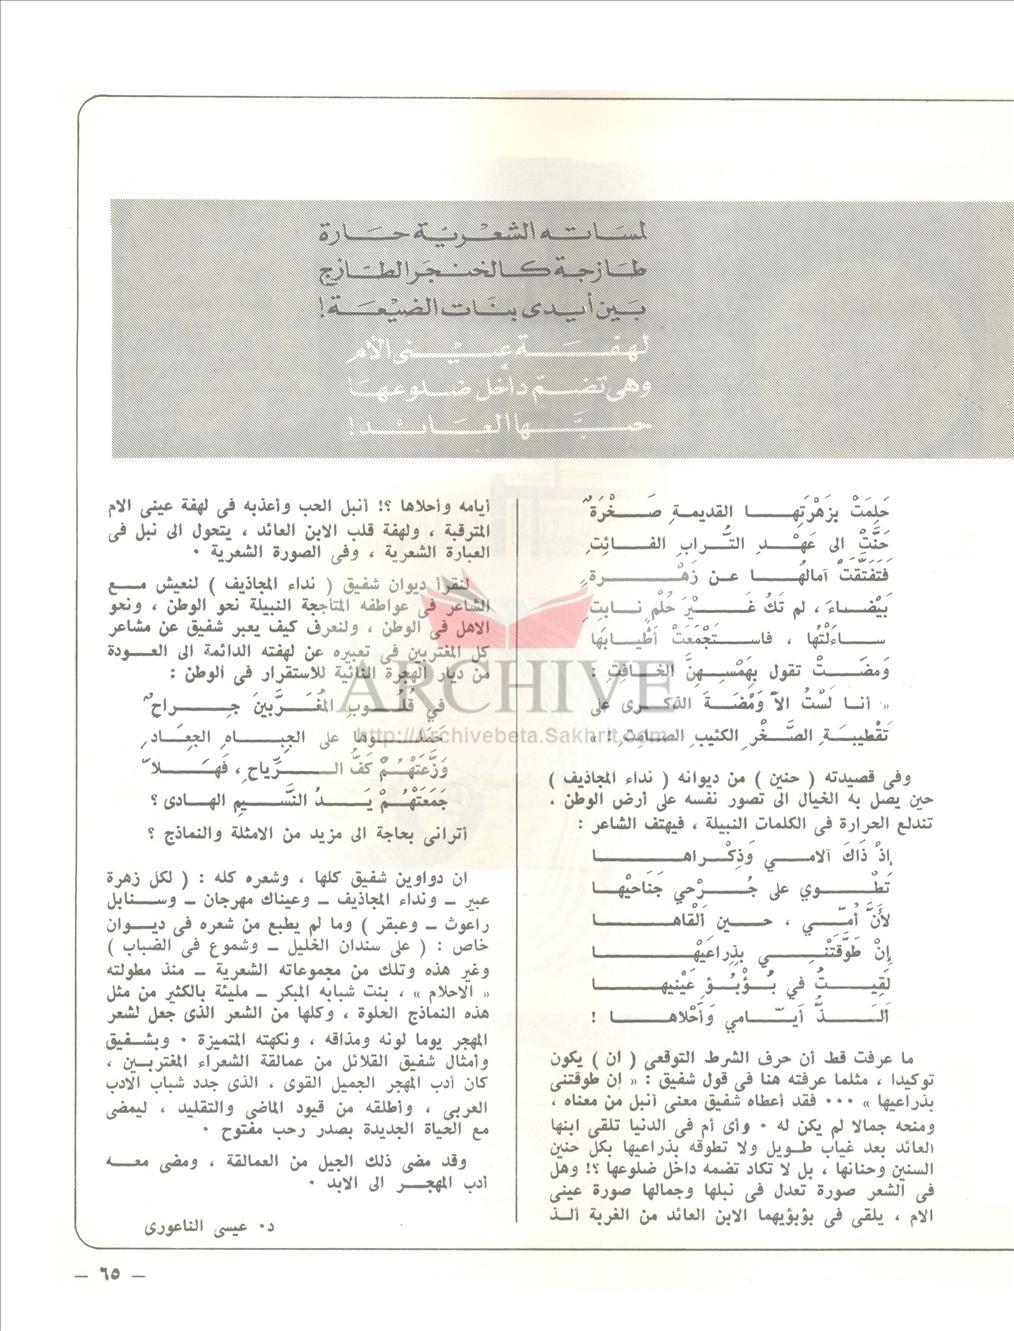 لمساته الشعرية حارة
طازجة كالخنجر الطازج
بين أيدى بنات الضيعة!
لهفة عينى الأم
وهى تضم داخل ضلوعها
حبها العائد!
حَلِمَتْ بزَهْرَتِها القديمةِ صَخْرَةٌ
حَنَّتْ الى عَهْدِ التُّرابِ الفائتِ
فَتَفَتَّقَتْ آمالُها عن زَهْرةٍ
بَيْضاءَ ، لم تَكُ غَيْرَ حُلْمٍ نابتِ
ساءَلْتُها ، فاستَجْمَعَتْ أطْيابَها
وَمضَتْ تقول بِهَمْسِهِنَّ الخافتِ :
« أنا لَسْتُ الاّ وَمْضَةَ الذكرى على
تَقْطيبةِ الصَّخْرِ الكئيبِ الصامتِ ! »
وفى قصيدته ( حنين ) من ديوانه ( نداء المجاذيف )
حين يصل به الخيال الى تصور نفسه على أرض الوطن ،
تندلع الحرارة فى الكلمات النبيلة ، فيهتف الشاعر :
إذْ ذَاكَ آلامي وَذِكْراها
تَطْوي على جُرْحي جَنَاحيْها
لأَنَّ أُمّي ، حين ألْقاها
إنْ طَوَّقَتْني بِذِراعَيْها
لَقِيتُ في بُؤْبُؤِ عَيْنيها
ألذَّ أيّامي وَأحْلاها !
ما عرفت قط أن حرف الشرط التوقعى ( ان ) يكون
توكيدا ، مثلما عرفته هنا فى قول شفيق : « إن طوقتنى
بذراعيها » ٠٠٠ فقد أعطاه شفيق معنى أنبل من معناه ،
ومنحه جمالا لم يكن له ٠ وأى أم فى الدنيا تلقى ابنها
العائد بعد غياب طويل ولا تطوقه بذراعيها بكل حنين
السنين وحنانها ، بل لا تكاد تضمه داخل ضلوعها ؟! وهل
فى الشعر صورة تعدل فى نبلها وجمالها صورة عينى
الام ، يلقى فى بؤبؤيهما الابن العائد من الغربة ألذ
أيامه وأحلاها ؟! أنبل الحب وأعذبه فى لهفة عينى الام
المترقبة ، ولهفة قلب الابن العائد ، يتحول الى نبل فى
العبارة الشعرية ، وفى الصورة الشعرية ٠
لنقرأ ديوان شفيق ( نداء المجاذيف ) لنعيش مع
الشاعر فى عواطفه المتأججة النبيلة نحو الوطن ، ونحو
الاهل فى الوطن ، ولنعرف كيف يعبر شفيق عن مشاعر
كل المغتربين فى تعبيره عن لهفته الدائمة الى العودة
من ديار الهجرة النائية للاستقرار فى الوطن :
في قلوبِ المُغَرَّبينَ جِراحٌ
حَمَلوها على الجِباهِ الجِعادِ
وَزَّعَتْهُمْ كَفُّ الرِّياحِ ، فَهَلاّ
جَمَعَتْهُمْ يَدُ النَّسيمِ الهادى ؟
أترانى بحاجة الى مزيد من الامثلة والنماذج ؟
ان دواوين شفيق كلها ، وشعره كله : ( لكل زهرة
عبير ــ ونداء المجاذيف ــ وعيناك مهرجان ــ وسنابل
راعوث ــ وعبقر ) وما لم يطبع من شعره فى ديوان
خاص : ( على سندان الخليل ــ وشموع فى الضباب )
وغير هذه وتلك من مجموعاته الشعرية ــ منذ مطولته
« الاحلام » ، بنت شبابه المبكر ــ مليئة بالكثير من مثل
هذه النماذج الحلوة ، وكلها من الشعر الذى جعل لشعر
المهجر يوما لونه ومذاقه ، ونكهته المتميزة ٠ وبشفيق
وأمثال شفيق القلائل من عمالقة الشعراء المغتربين ،
كان أدب المهجر الجميل القوى ، الذى جدد شباب الادب
العربى ، وأطلقه من قيود الماضى والتقليد ، ليمضى
مع الحياة الجديدة بصدر رحب مفتوح ٠
وقد مضى ذلك الجيل من العمالقة ، ومضى معه
أدب المهجر الى الابد ٠
د٠ عيسى الناعورى
ARCHIVE
http://Archivebeta.Sakhrit.com
ــ ٦٥ ــ